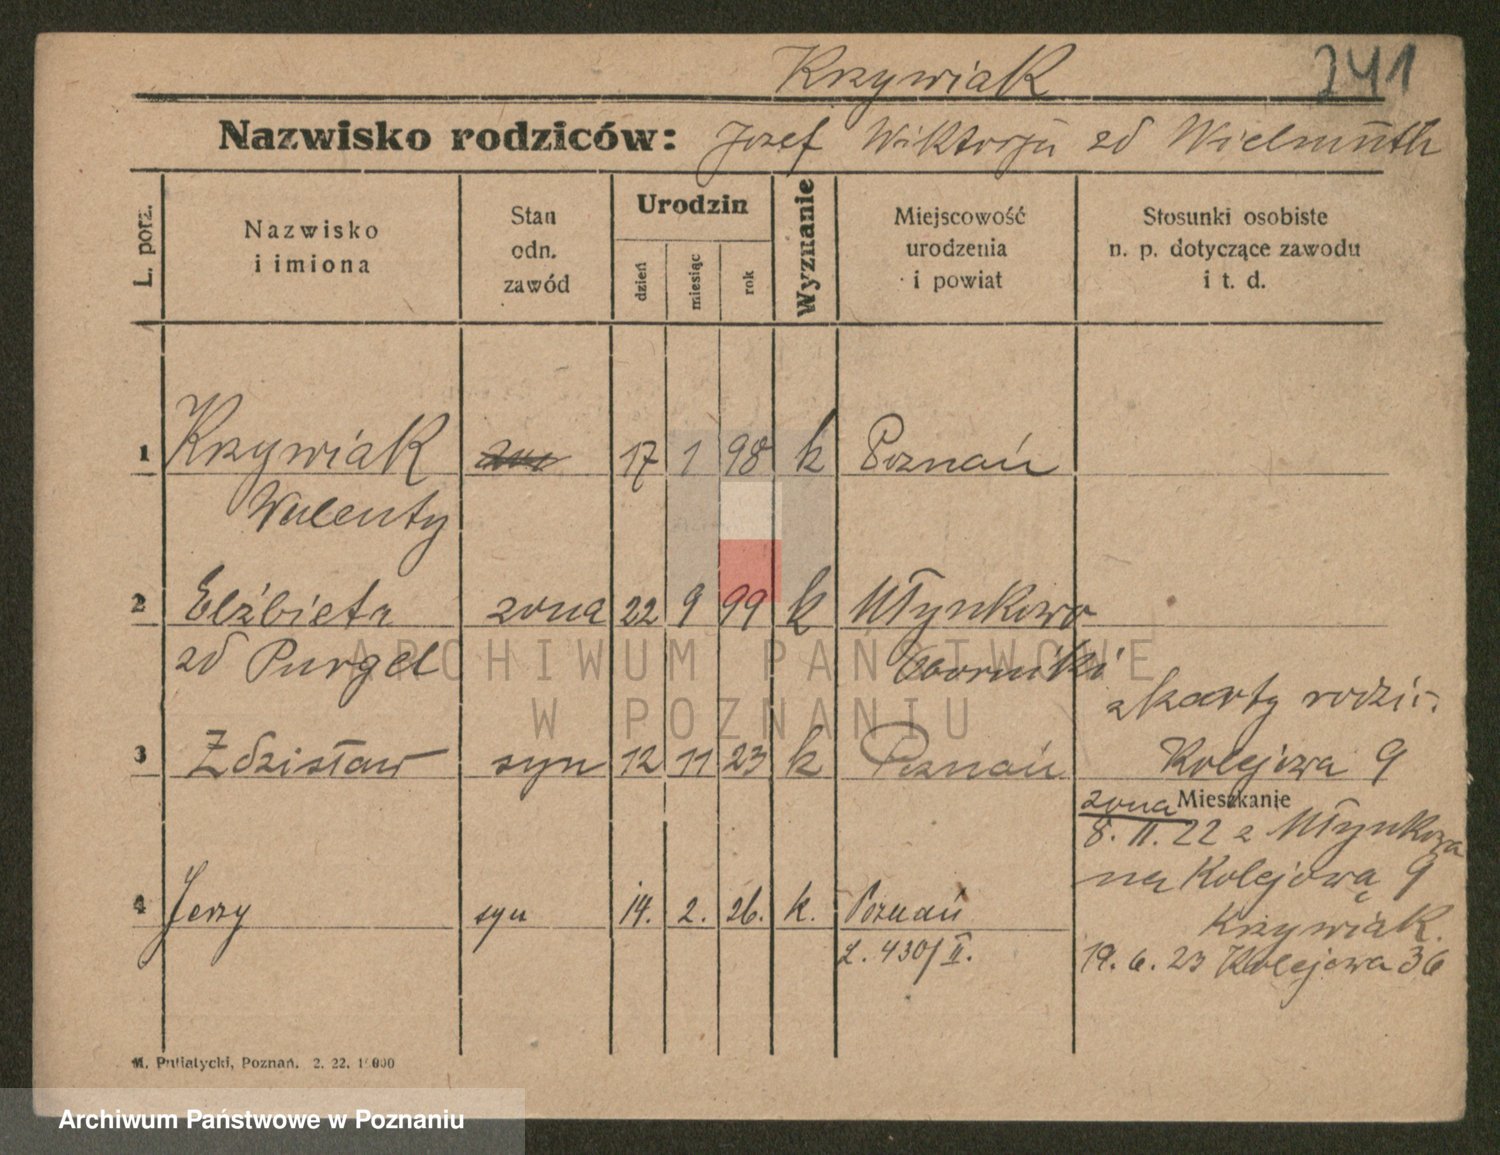 Krzywiak
241
Nazwisko rodziców: Jozef Wiktorju zd Wielmuth
L. porz.
Nazwisko i imiona
Stan odn. zawód
Urodzin
dzień
miesiąc
rok
Wyznanie
Miejscowość urodzenia i powiat
Stosunki osobiste n. p. dotyczące zawodu i t. d.
1 Krzywiak 17 1 98 k Poznań
Walenty
2 Elżbieta zona 22 9 99 k Młynkowo
zd Purgel Oborniki
z karty rodzic.
3 Zdzisław syn 12 11 23 k Poznań Kolejowa 9
Mieszkanie
zona
8. II. 22 z Młynkowa
na Kolejową 9
4 Jerzy syn 14. 2. 26. k. Poznań
Krzywiak.
L. 430/II.
19. 6. 23 Kolejowa 36
M. Putiatycki, Poznań. 2. 22.
ARCHIWUM PAŃSTWOWE
W POZNANIU
Archiwum Państwowe w Poznaniu